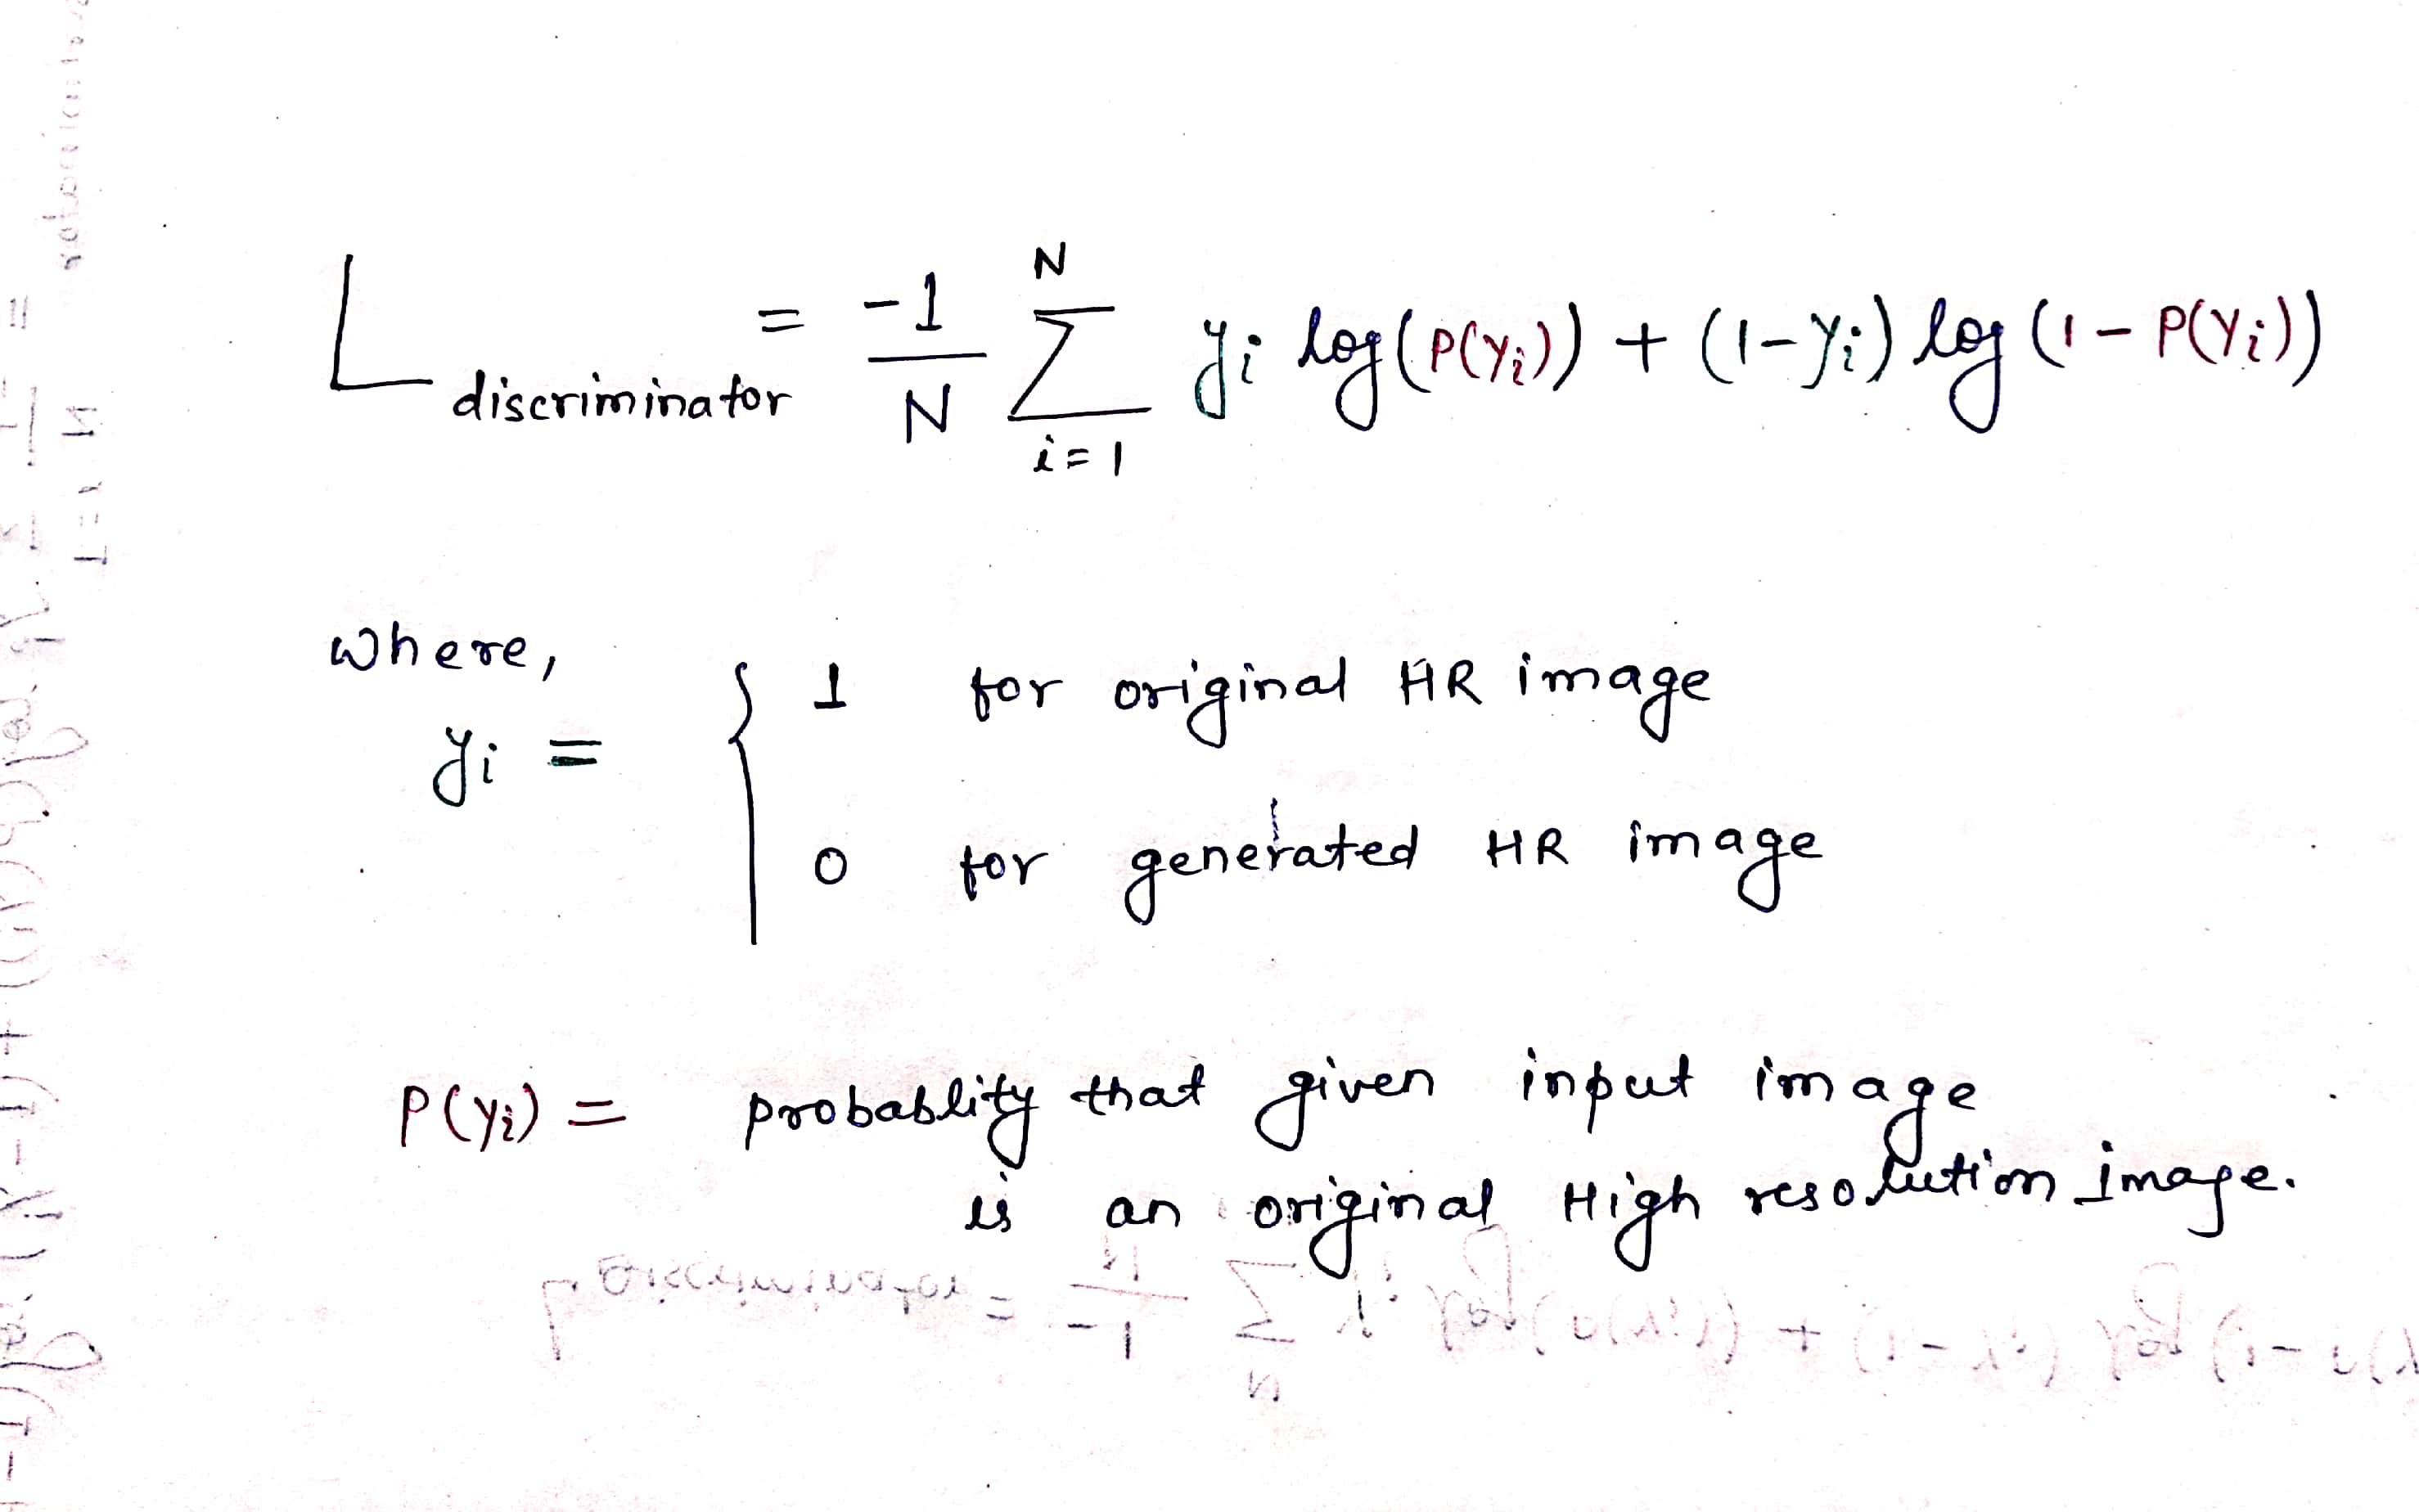 L discriminator = -1/N Σ_{i=1}^{N} yi log(P(yi)) + (1-yi) log(1-P(yi))
where,
yi = { 1 for original HR image
0 for generated HR image
P(yi) = probablity that given input image
is an original High resolution image.